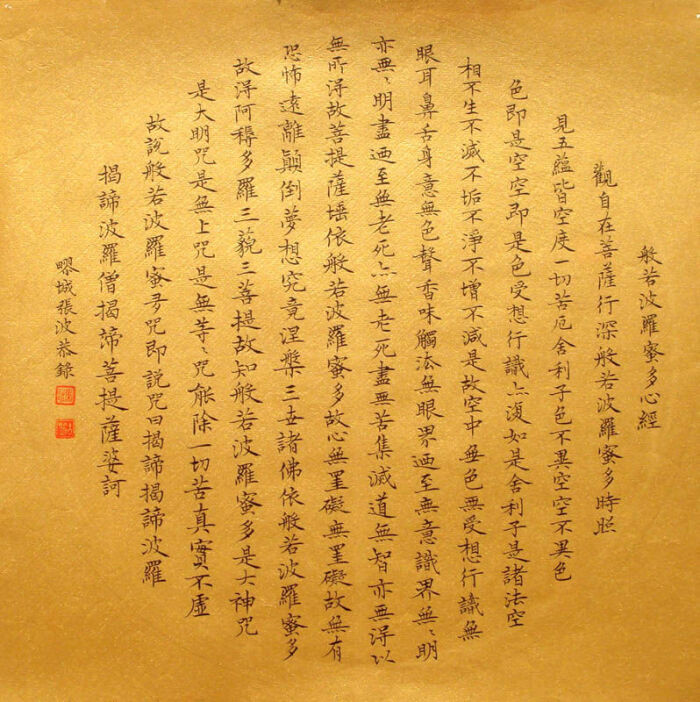 般若波羅蜜多心經
觀自在菩薩行深般若波羅蜜多時照
見五蘊皆空度一切苦厄舍利子色不異空空不異色
色即是空空即是色受想行識亦復如是舍利子是諸法空
相不生不滅不垢不淨不增不減是故空中無色無受想行識無
眼耳鼻舌身意無色聲香味觸法無眼界迺至無意識界無〻明
亦無〻明盡迺至無老死亦無老死盡無苦集滅道無智亦無得以
無所得故菩提薩埵依般若波羅蜜多故心無罣礙無罣礙故無有
恐怖遠離顛倒夢想究竟涅槃三世諸佛依般若波羅蜜多
故得阿耨多羅三藐三菩提故知般若波羅蜜多是大神咒
是大明咒是無上咒是無等〻咒能除一切苦真實不虛
故說般若波羅蜜多咒即說咒曰揭諦揭諦波羅
揭諦波羅僧揭諦菩提薩婆訶
疁城張波恭錄